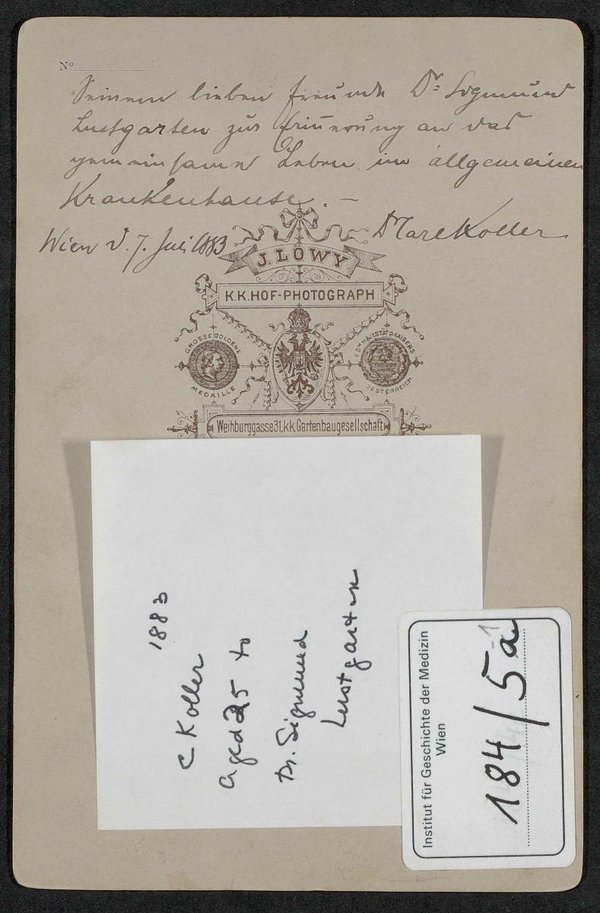 No
Seinem lieben Freunde Dr Sigmund
Lustgarten zur Erinnerung an das
gemeinsame Leben im allgemeinen
Krankenhause. –
Wien d. 7. Juli 1883 Dr Carl Koller
J. LÖWY
K.K. HOF-PHOTOGRAPH
GROSSE GOLDENE
MEDAILLE
OESTERREICH
Weihburggasse 31, k.k. Gartenbaugesellschaft
1883
C Koller
aged 25 to
Dr. Sigmund
Lustgarten
Institut für Geschichte der Medizin
Wien
184/5a
-1